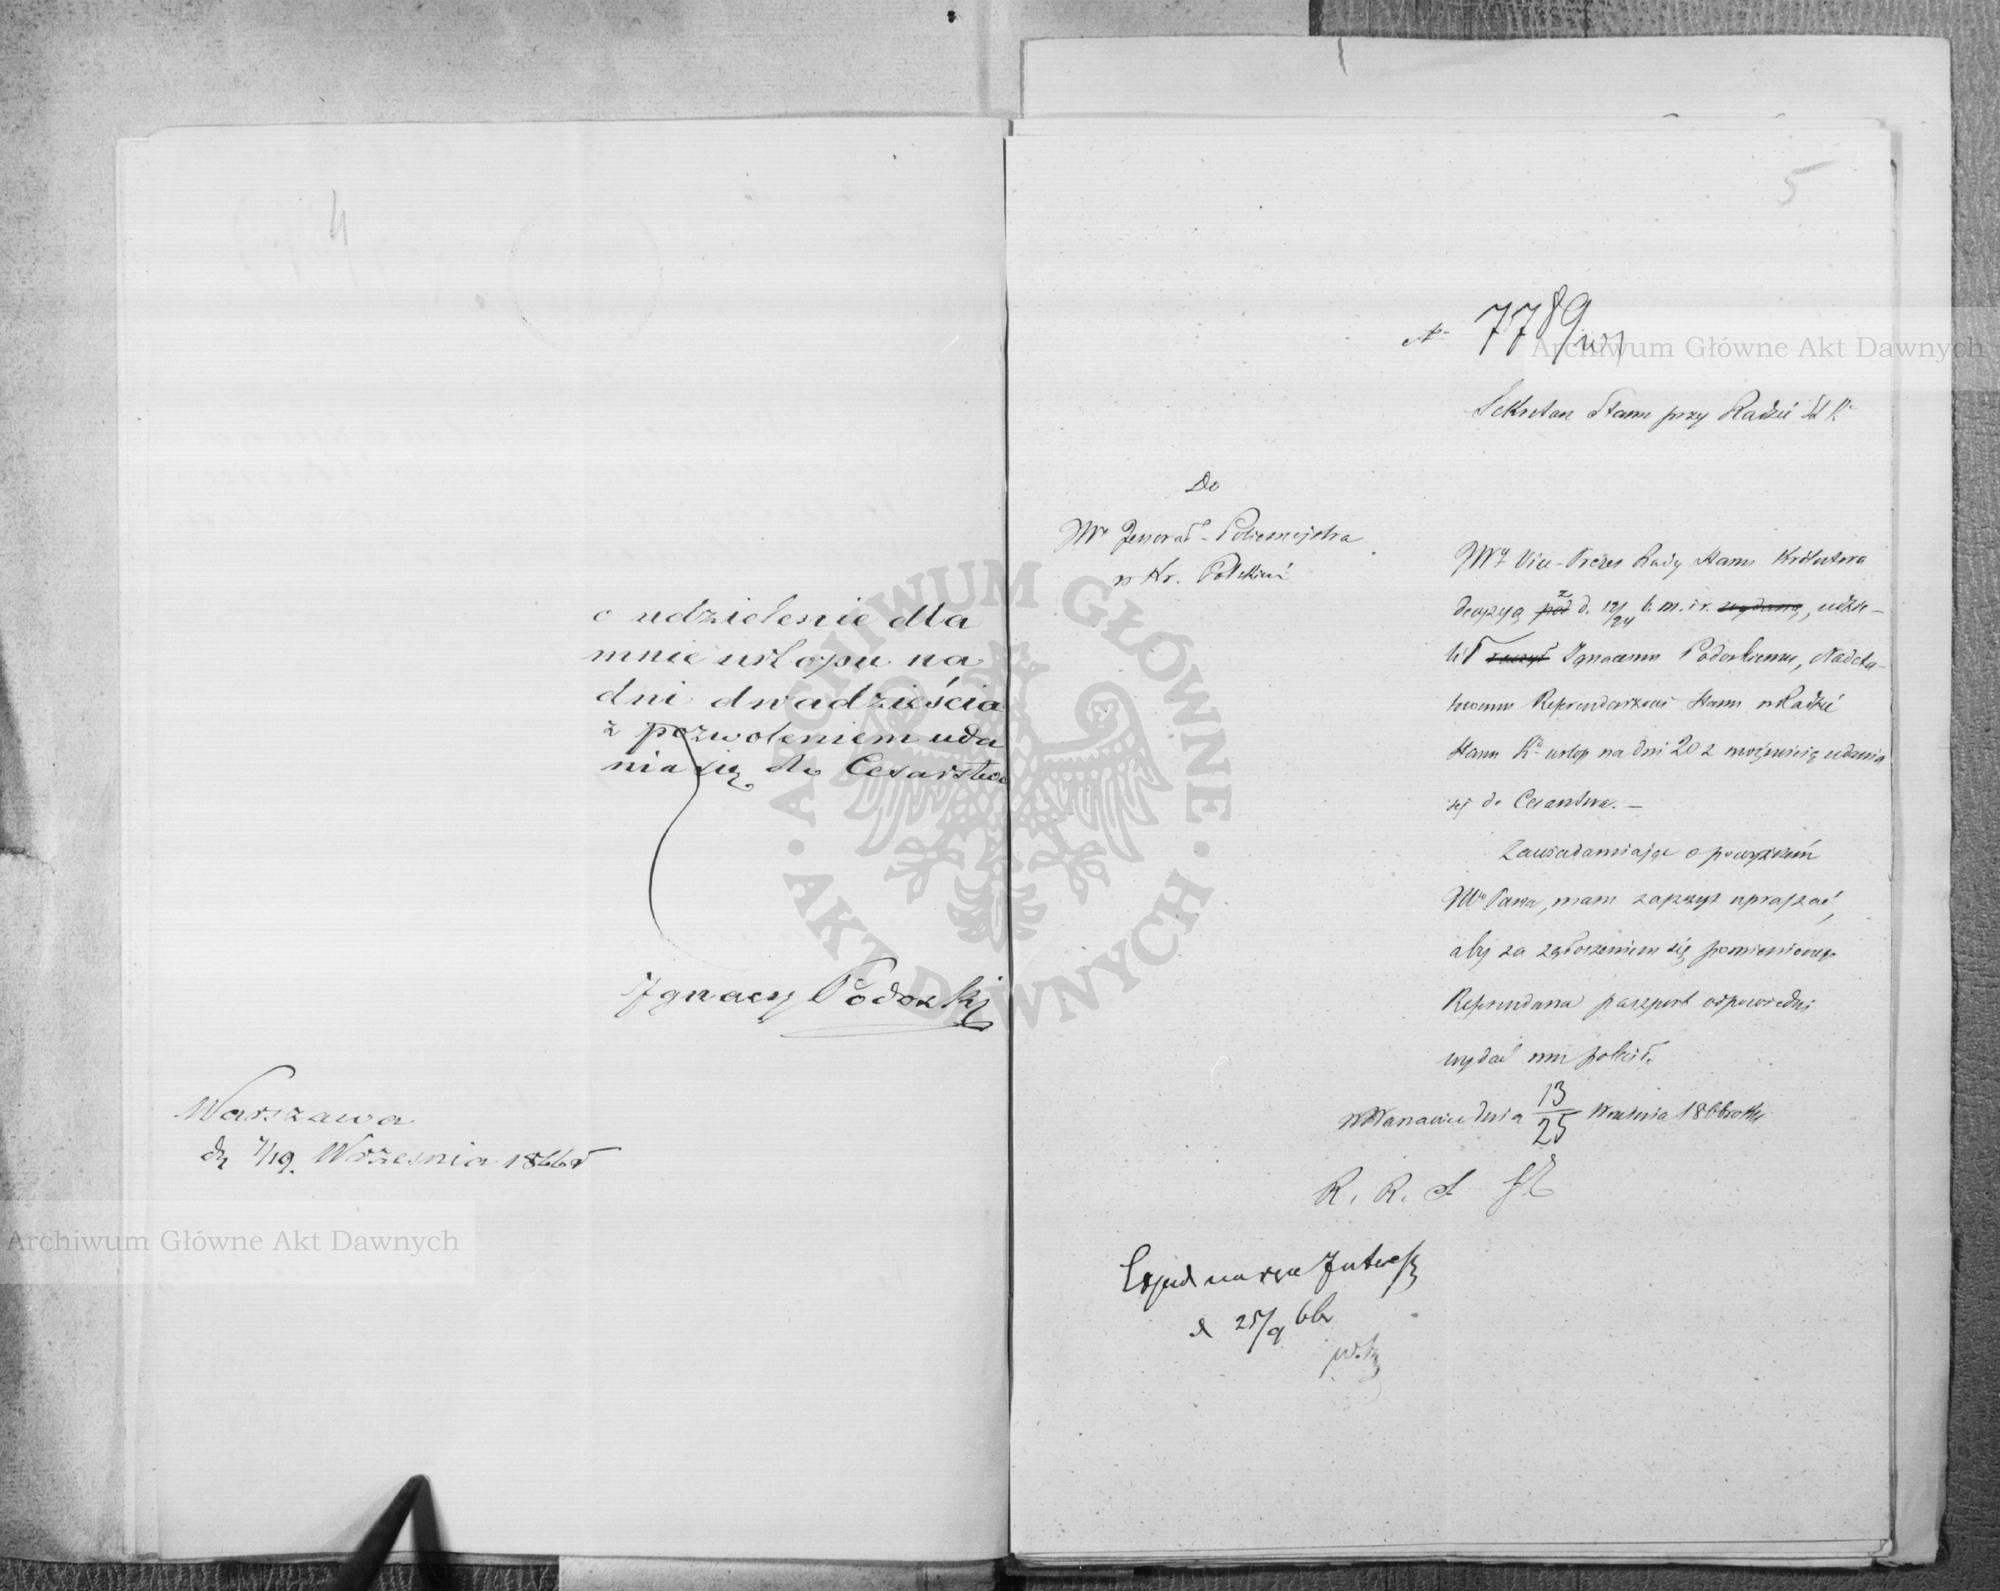 4
o udzielenie dla
mnie urlopu na
dni dwadzieścia
z pozwoleniem uda
nia się do Cesarstwa
Ignacy Podoski
Warszawa
d. 7/19. Września 1866 r
5
N 7789/
Sekretarz Stanu przy Radzie St Kr
Do
JW Jenerał-Policmajstra
w Kr. Polskiem
JWy Vice-Prezes Rady Stanu Królestwa
decyzyą pod z d. 12/24 b. m. i r. wydaną, udzie-
lił raczył Ignacemu Podoskiemu, Nadeta-
towemu Referendarzowi Stanu w Radzie
Stanu Kr urlop na dni 20 z możnością udania
się do Cesarstwa. —
Zawiadamiając o powyższém
JW Pana, mam zaszczyt upraszać,
aby za zgłoszeniem się pomienionego
Referendarza paszport odpowiedni
wydać mu polecił.
w Warszawie dnia 13/25 Września 1866 roku
R. R. S
d 25/9 66
Archiwum Główne Akt Dawnych
Archiwum Główne Akt Dawnych
ARCHIWUM GŁÓWNE · AKT DAWNYCH ·